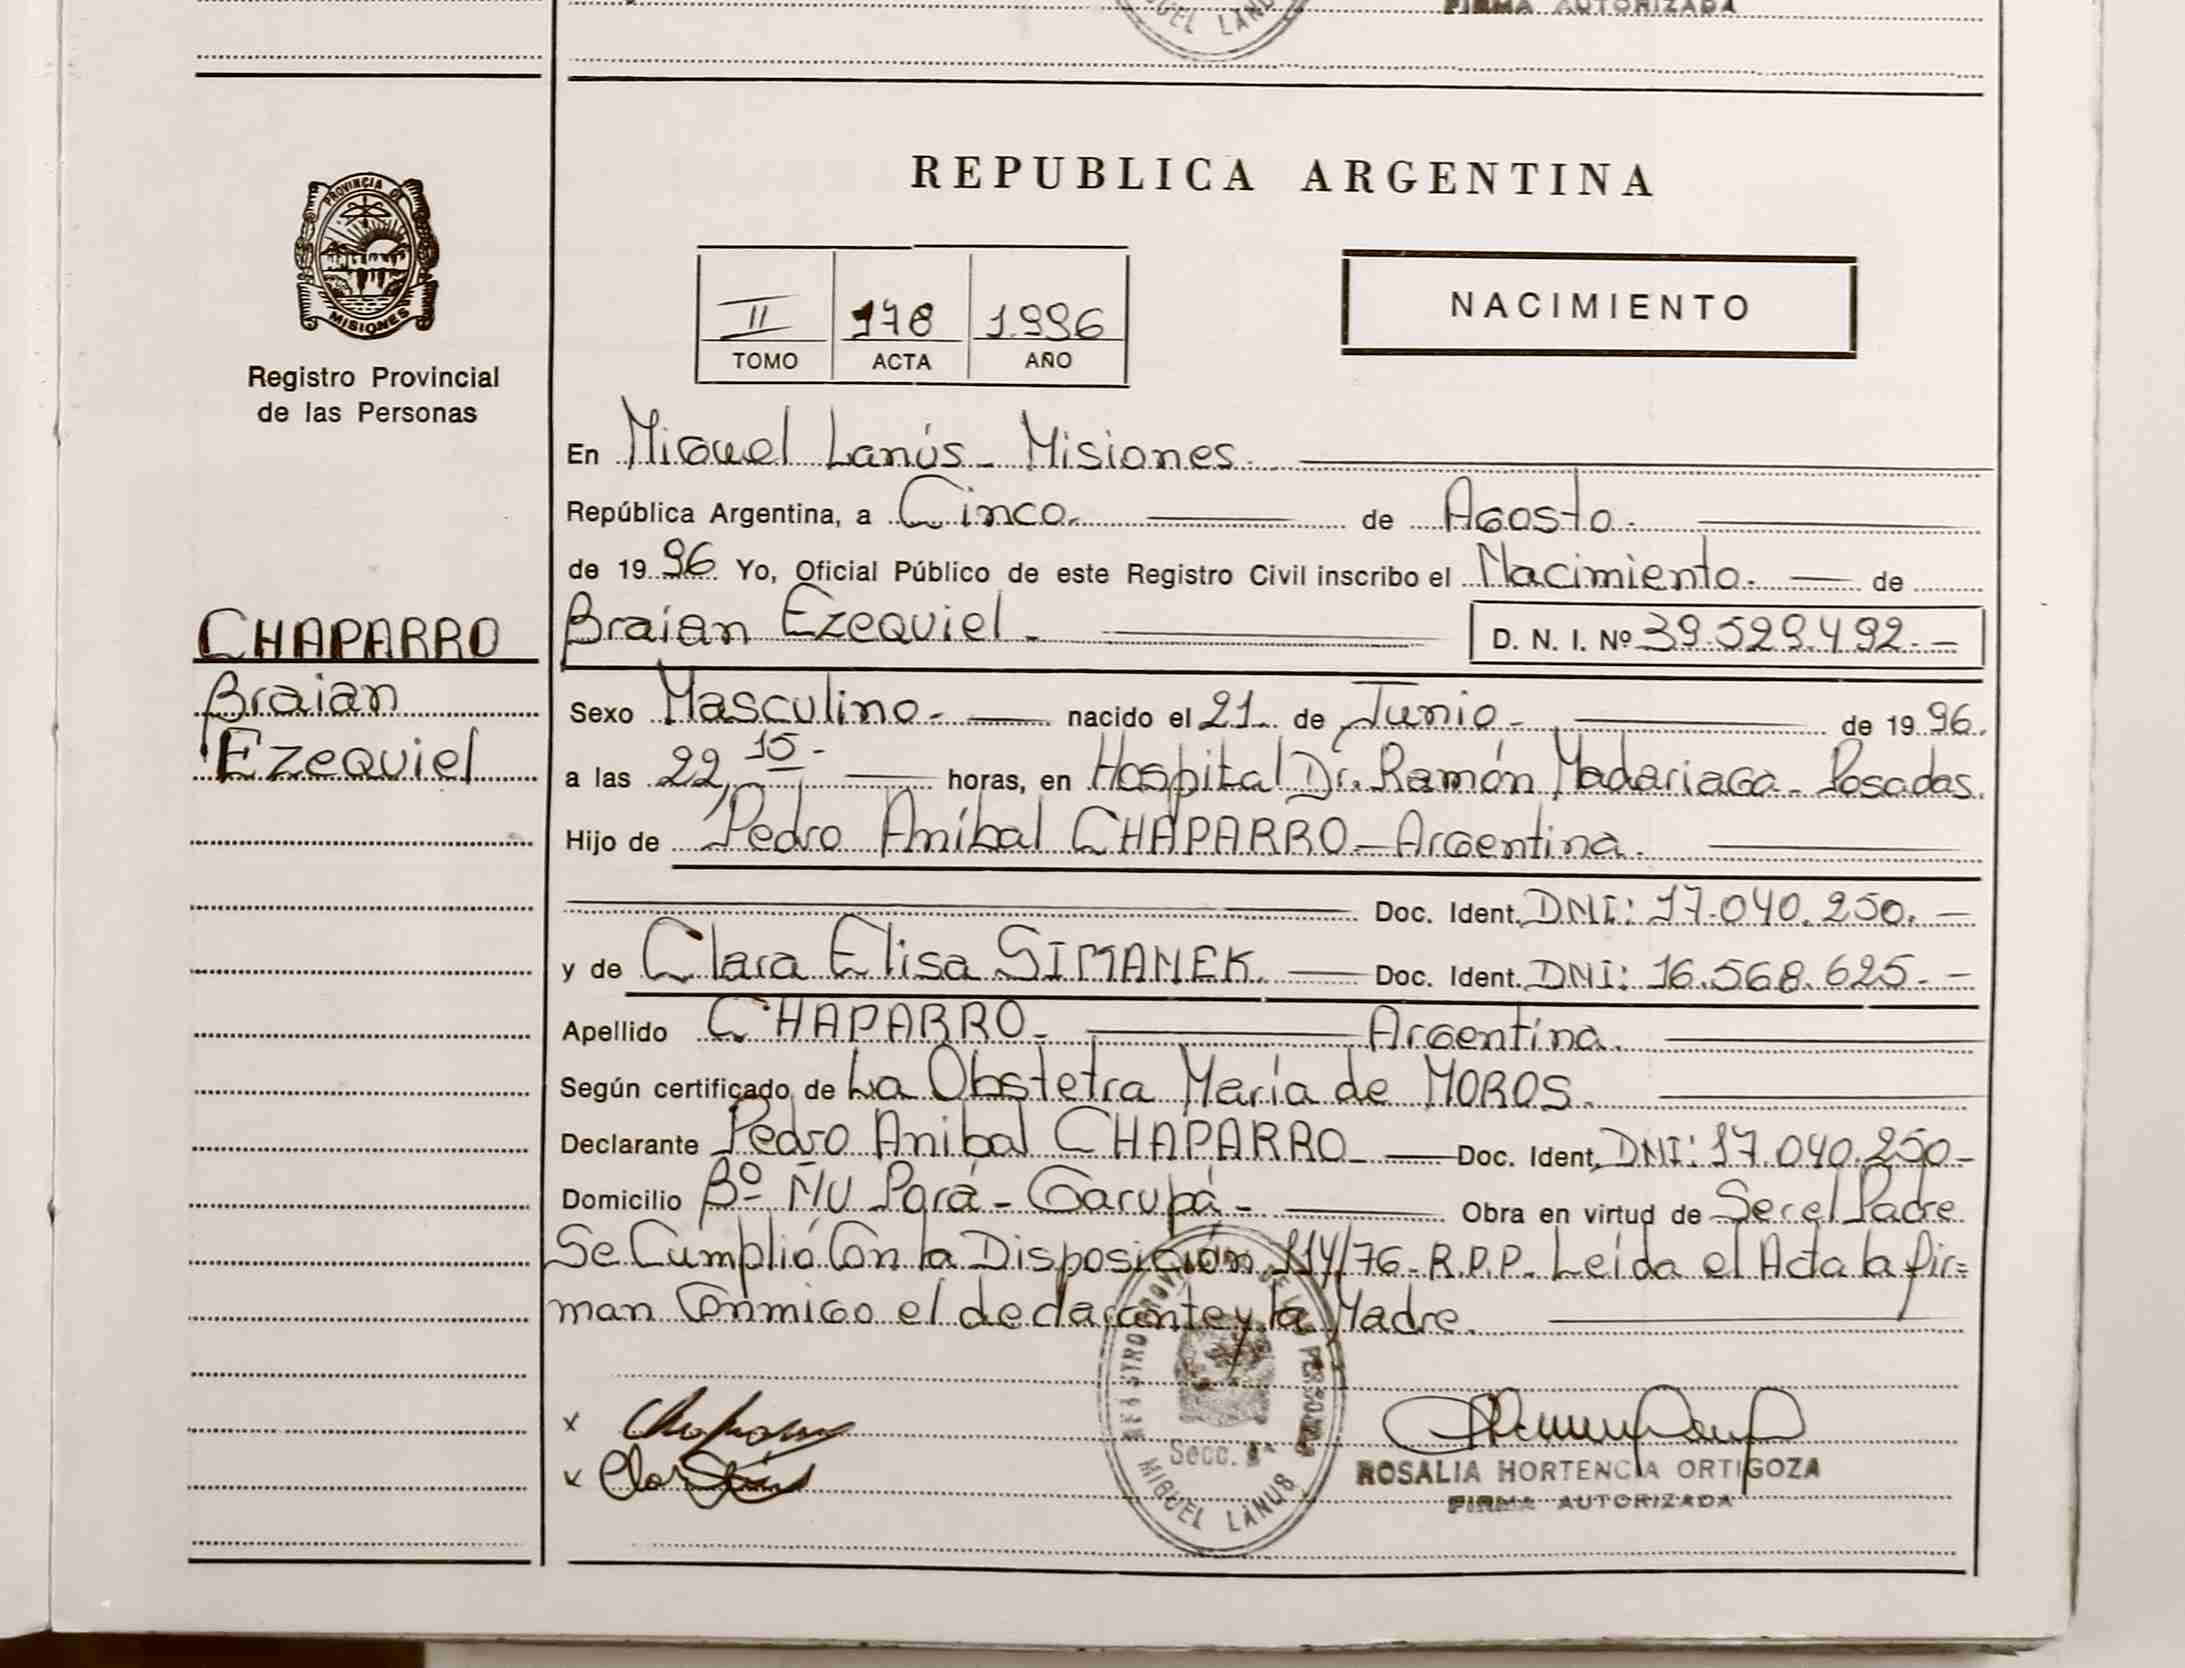 MIGUEL LANUS
FIRMA AUTORIZADA
PROVINCIA DE
MISIONES
Registro Provincial
de las Personas
CHAPARRO
Braian
Ezequiel
REPUBLICA ARGENTINA
II 178 1.996
TOMO ACTA AÑO
NACIMIENTO
En Miguel Lanús - Misiones.
República Argentina, a Cinco. de Agosto.
de 1996. Yo, Oficial Público de este Registro Civil inscribo el Nacimiento. de
Braian Ezequiel. D. N. I. Nº 39.529.492.-
Sexo Masculino. nacido el 21 de Junio. de 1996.
a las 22,15.- horas, en Hospital Dr. Ramón Madariaga - Posadas.
Hijo de Pedro Aníbal CHAPARRO - Argentina.
Doc. Ident. DNI: 17.040.250.-
y de Clara Elisa SIMANEK. Doc. Ident. DNI: 16.568.625.-
Apellido CHAPARRO. Argentina.
Según certificado de La Obstetra María de MOROS.
Declarante Pedro Anibal CHAPARRO Doc. Ident. DNI: 17.040.250-
Domicilio Bº Ñu Porá - Garupá - Obra en virtud de Ser el Padre
Se Cumplió Con la Disposición 114/76 - R.P.P. Leída el Acta la fir=
man Conmigo el declarante y la Madre.
REGISTRO PROVINCIAL DE LAS PERSONAS
Secc. 8ª
MIGUEL LANUS
x Chaparro
x
ROSALIA HORTENCIA ORTIGOZA
FIRMA AUTORIZADA